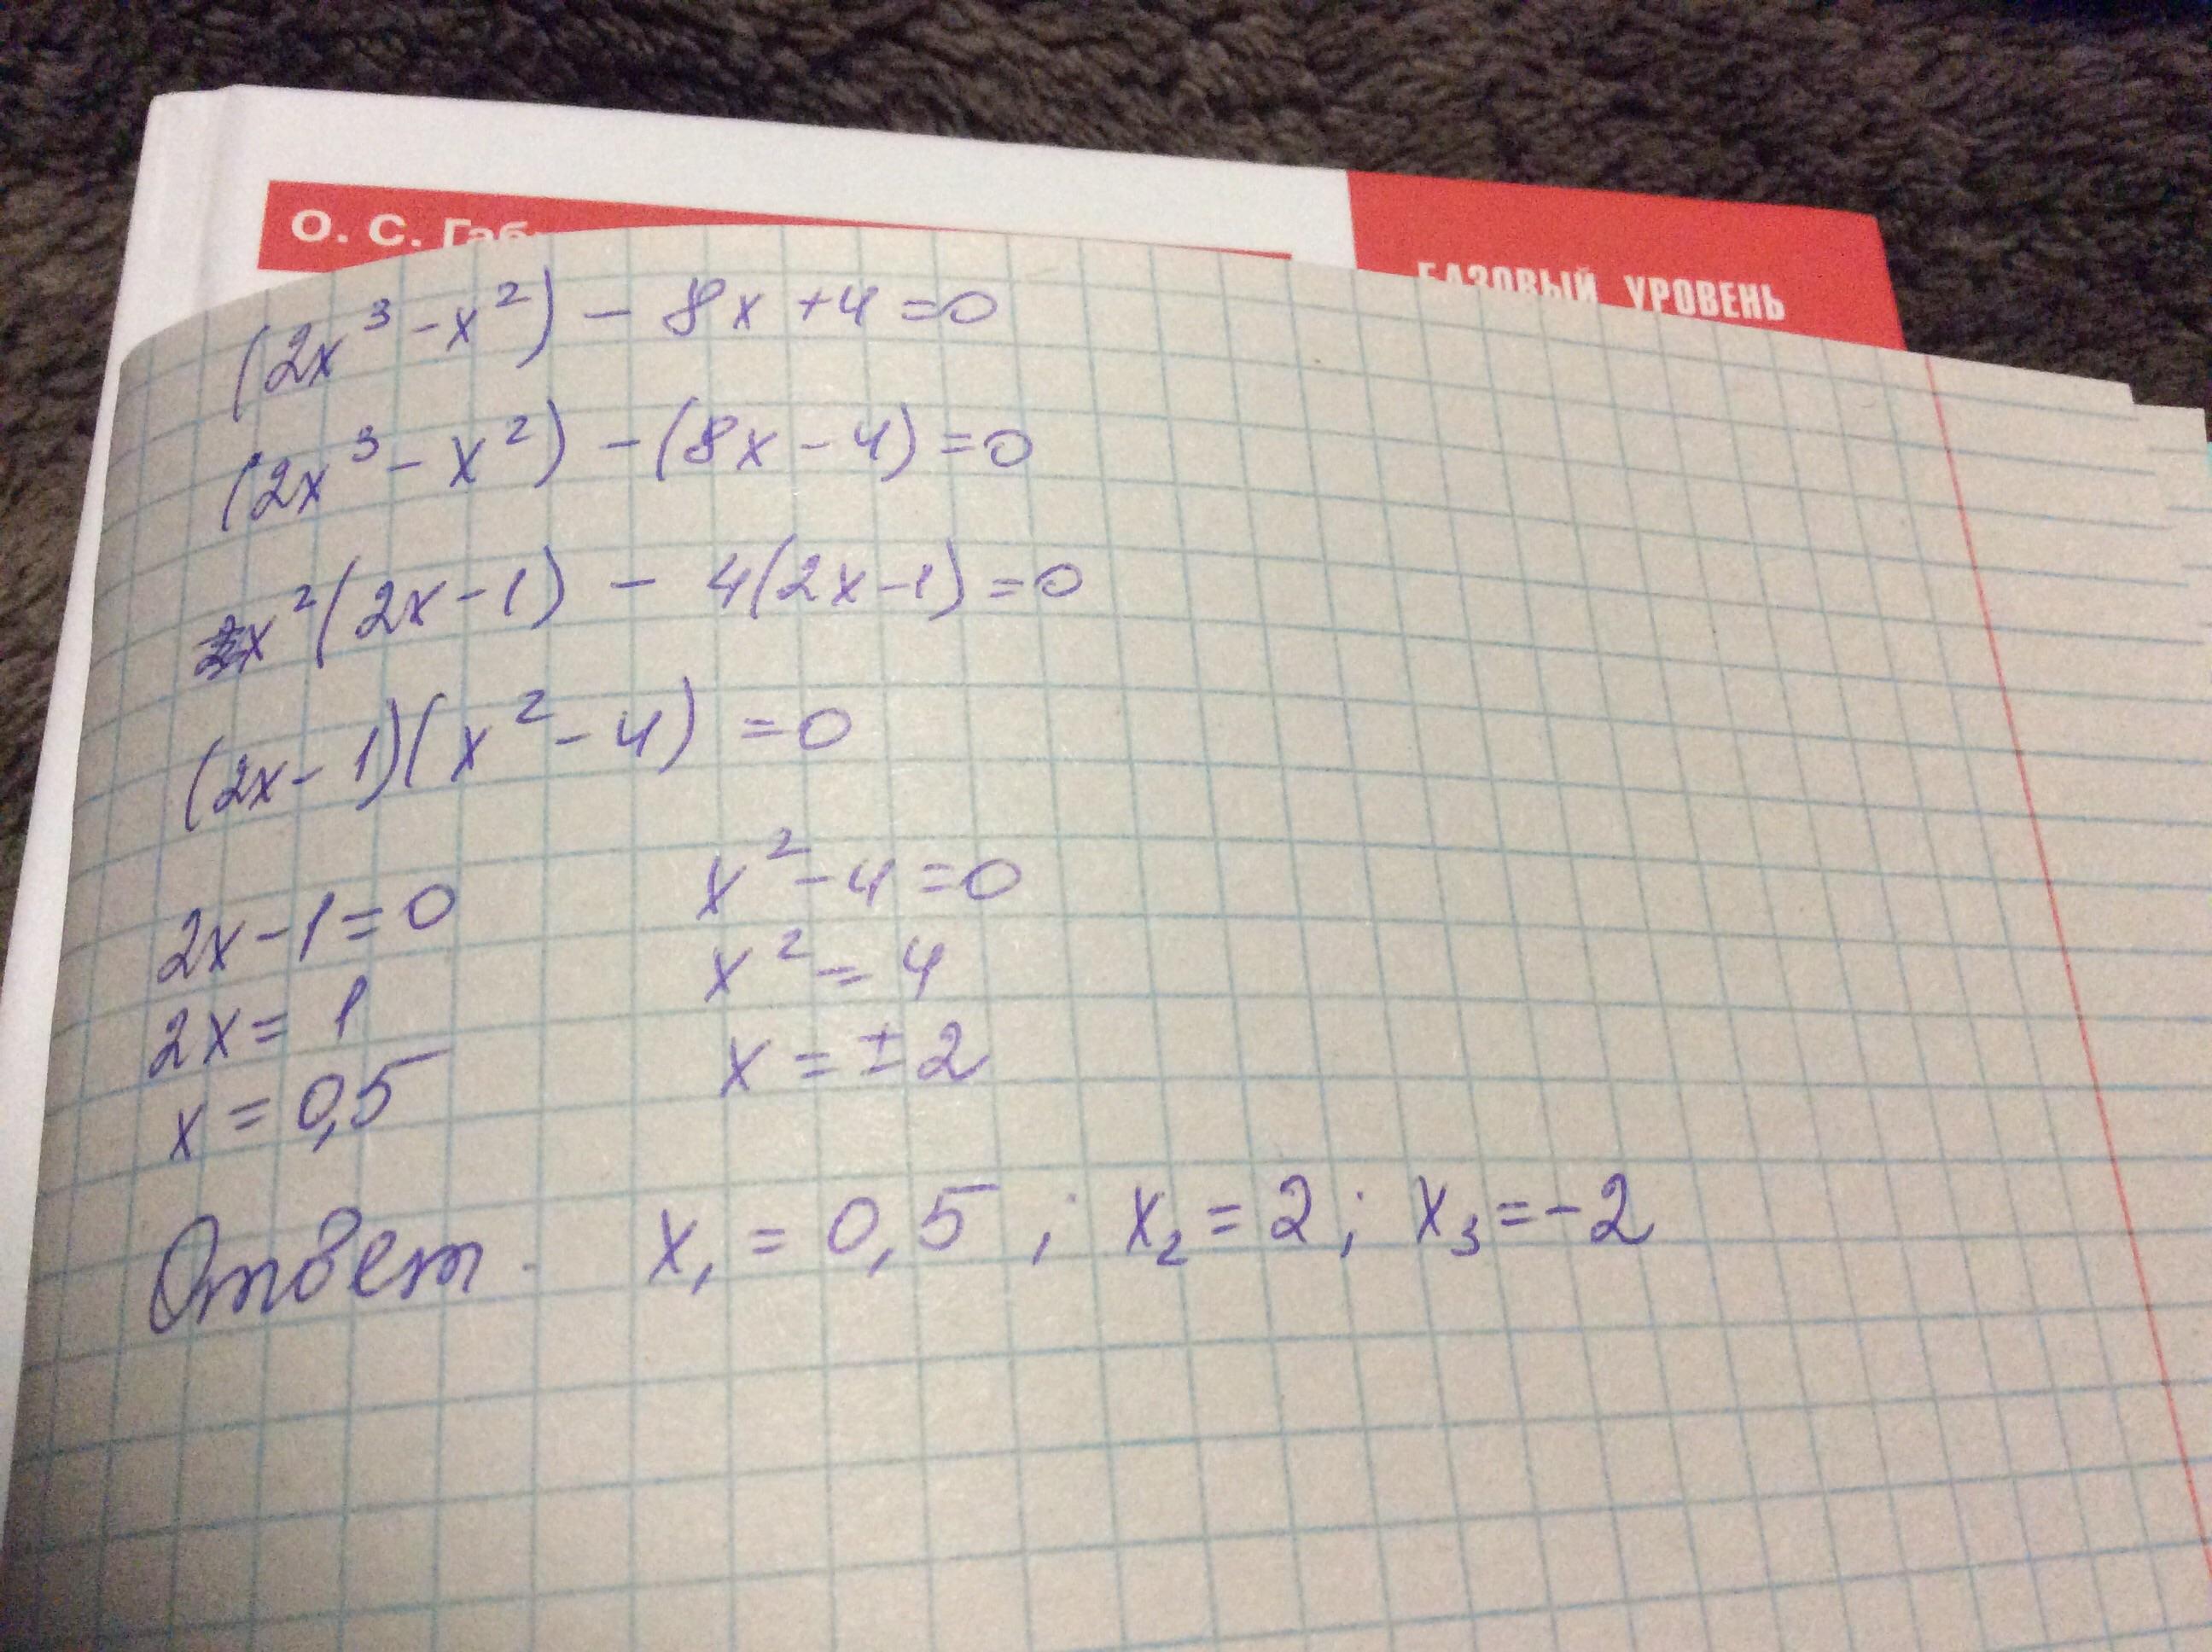 О. С. Габ
БАЗОВЫЙ УРОВЕНЬ
(2x³ - x²) - 8x + 4 = 0
(2x³ - x²) - (8x - 4) = 0
x²(2x - 1) - 4(2x - 1) = 0
(2x - 1)(x² - 4) = 0
2x - 1 = 0 x² - 4 = 0
2x = 1 x² = 4
x = 0,5 x = ± 2
Ответ. x₁ = 0,5 ; x₂ = 2 ; x₃ = -2